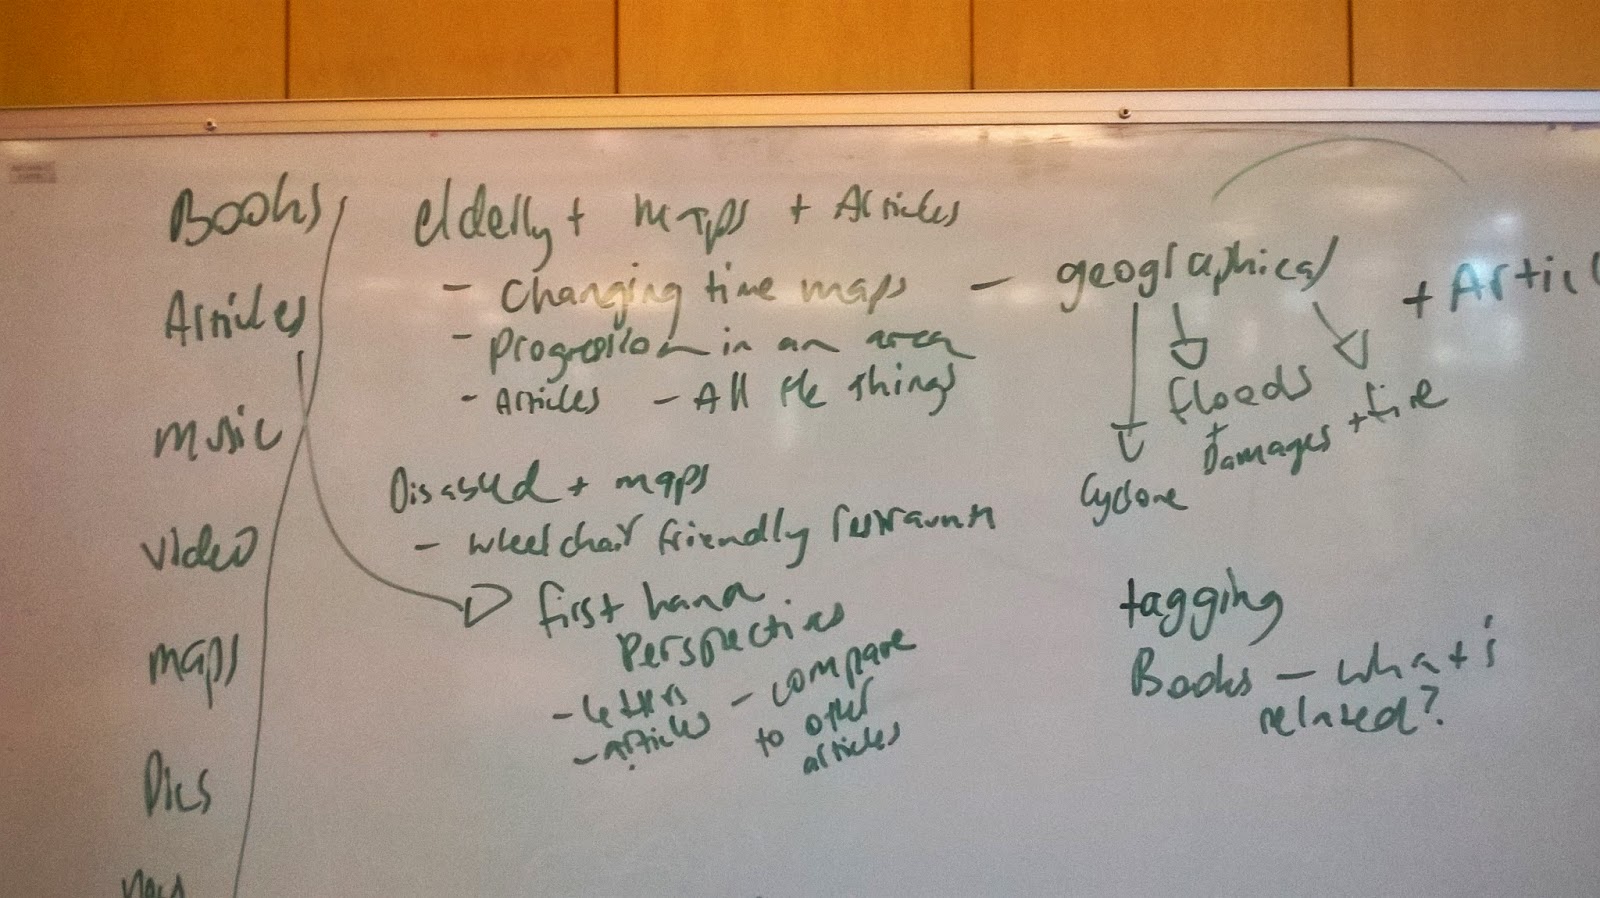 Books
Articles
music
video
maps
Pics
elderly + maps + Articles
- Changing time maps - geographical + Artic
- Progression in an area
- Articles - All the things
floods
+
Damages + fire
Cyclone
Disabled + maps
- wheelchair friendly
first hand
Perspectives
- letters
- articles - compare
to other
articles
tagging
Books - what is
related?